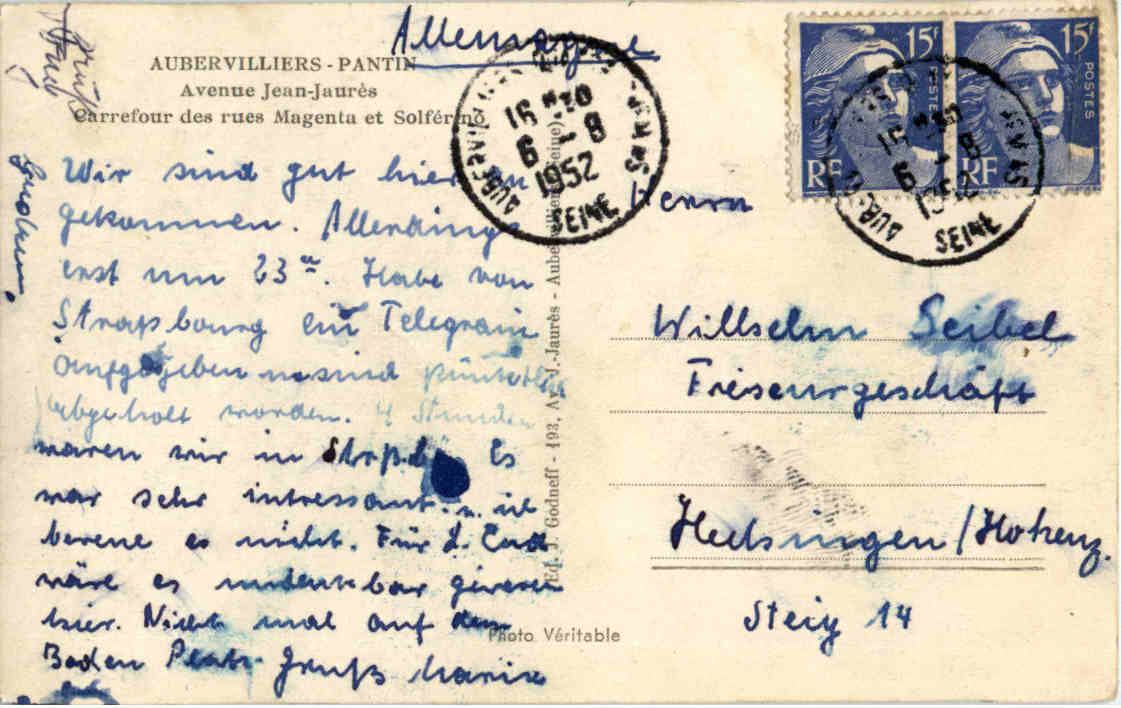 Allemagne
AUBERVILLIERS - PANTIN
Avenue Jean-Jaurès
Carrefour des rues Magenta et Solférino
Gruß
Wir sind gut hier an
gekommen. Allerdings
erst um 23 Habe von
Straßbourg ein Telegram
aufgegeben u sind pünktlich
abgeholt worden. 4 Stunden
waren wir in Es
war sehr intressant. u. ich
bereue es nicht. Für
wäre es undenkbar gewesen
hier. Nicht mal auf dem
Boden Platz. Gruß Maria
Ed. J. Godneff - 193, Av. J.-Jaurès - Aubervilliers (Seine).
Photo Véritable
16 H 30
6 - 8
1952
SEINE
15F 15F
POSTES POSTES
RF RF
16
6 - 8
1952
SEINE
Herrn
Willhelm Seibel
Friseurgeschäft
Hechingen/Hohenz.
Steig 14